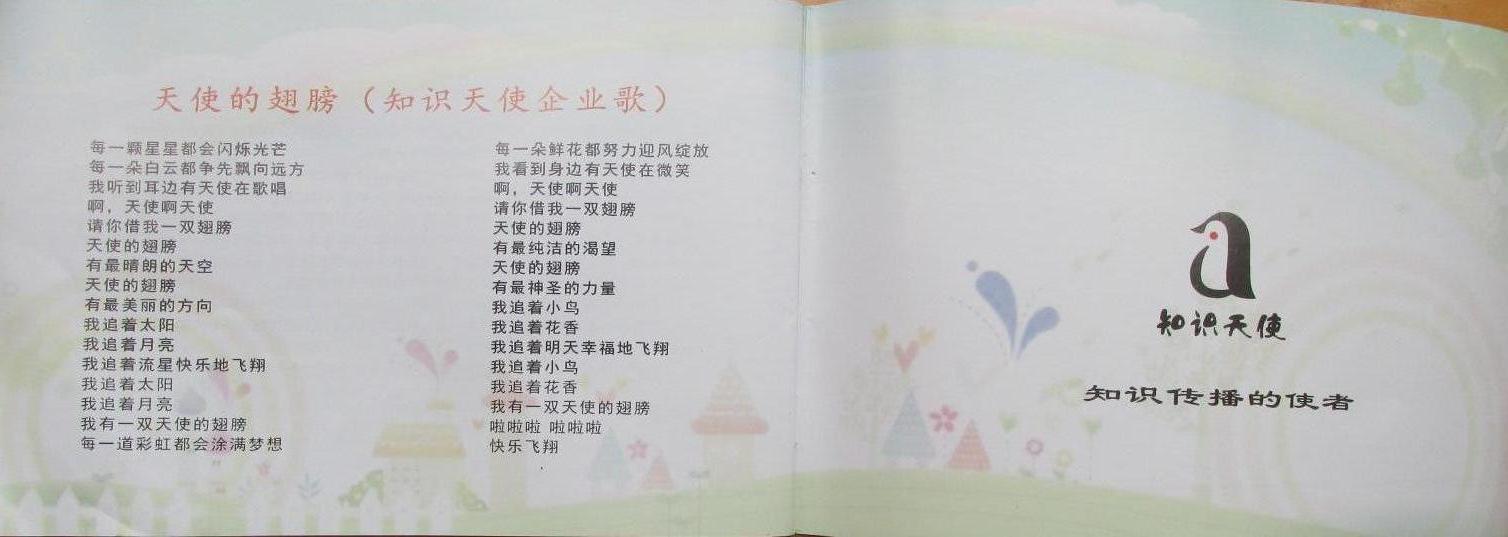 天使的翅膀（知识天使企业歌）
每一颗星星都会闪烁光芒
每一朵白云都争先飘向远方
我听到耳边有天使在歌唱
啊，天使啊天使
请你借我一双翅膀
天使的翅膀
有最晴朗的天空
天使的翅膀
有最美丽的方向
我追着太阳
我追着月亮
我追着流星快乐地飞翔
我追着太阳
我追着月亮
我有一双天使的翅膀
每一道彩虹都会涂满梦想
每一朵鲜花都努力迎风绽放
我看到身边有天使在微笑
啊，天使啊天使
请你借我一双翅膀
天使的翅膀
有最纯洁的渴望
天使的翅膀
有最神圣的力量
我追着小鸟
我追着花香
我追着明天幸福地飞翔
我追着小鸟
我追着花香
我有一双天使的翅膀
啦啦啦 啦啦啦
快乐飞翔
知识天使
知识传播的使者